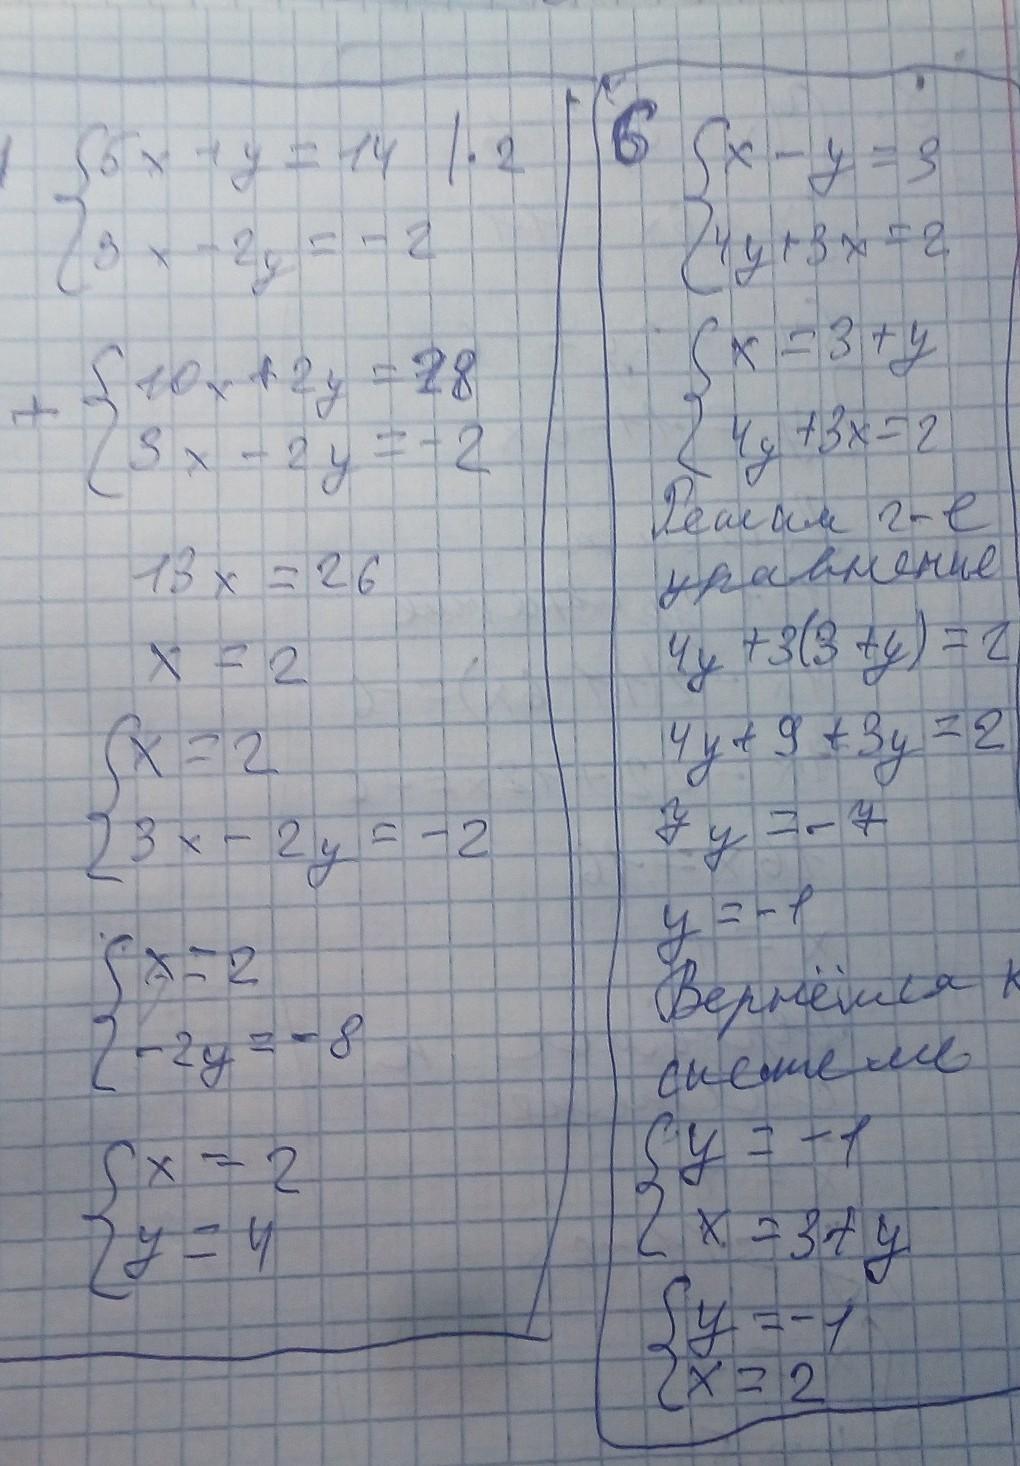 {5x+y=14 |·2
{3x-2y=-2
+ {10x+2y=28
{3x-2y=-2
13x=26
x=2
{x=2
{3x-2y=-2
{x=2
{-2y=-8
{x=2
{y=4
б {x-y=3
{4y+3x=2
{x=3+y
{4y+3x=2
Решим 2-е
уравнение
4y+3(3+y)=2
4y+9+3y=2
7y=-7
y=-1
Вернёмся к
системе
{y=-1
{x=3+y
{y=-1
{x=2